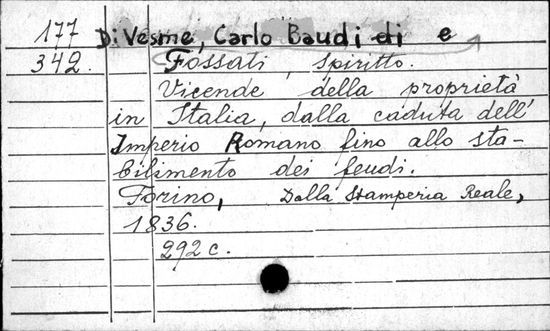 177 Di Vesme, Carlo Baudi di e
342. Fossati, Spiritto.
Vicende della proprietà
in Italia, dalla caduta dell'
Imperio Romano fino allo sta-
bilimento dei feudi.
Torino, Dalla Stamperia Reale,
1836.
292 c.